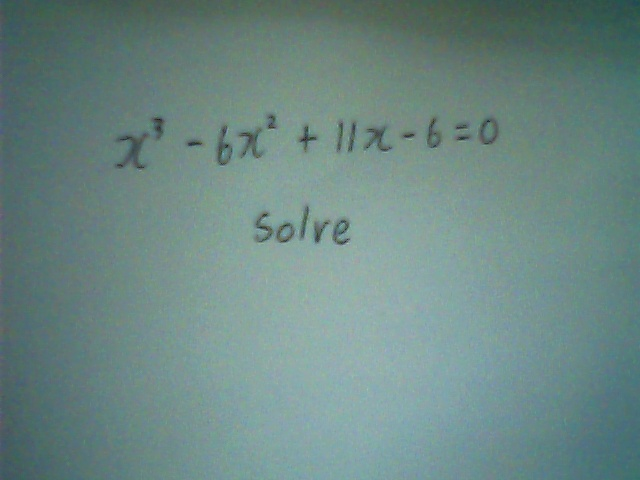 x³ - 6x² + 11x - 6 = 0
solve